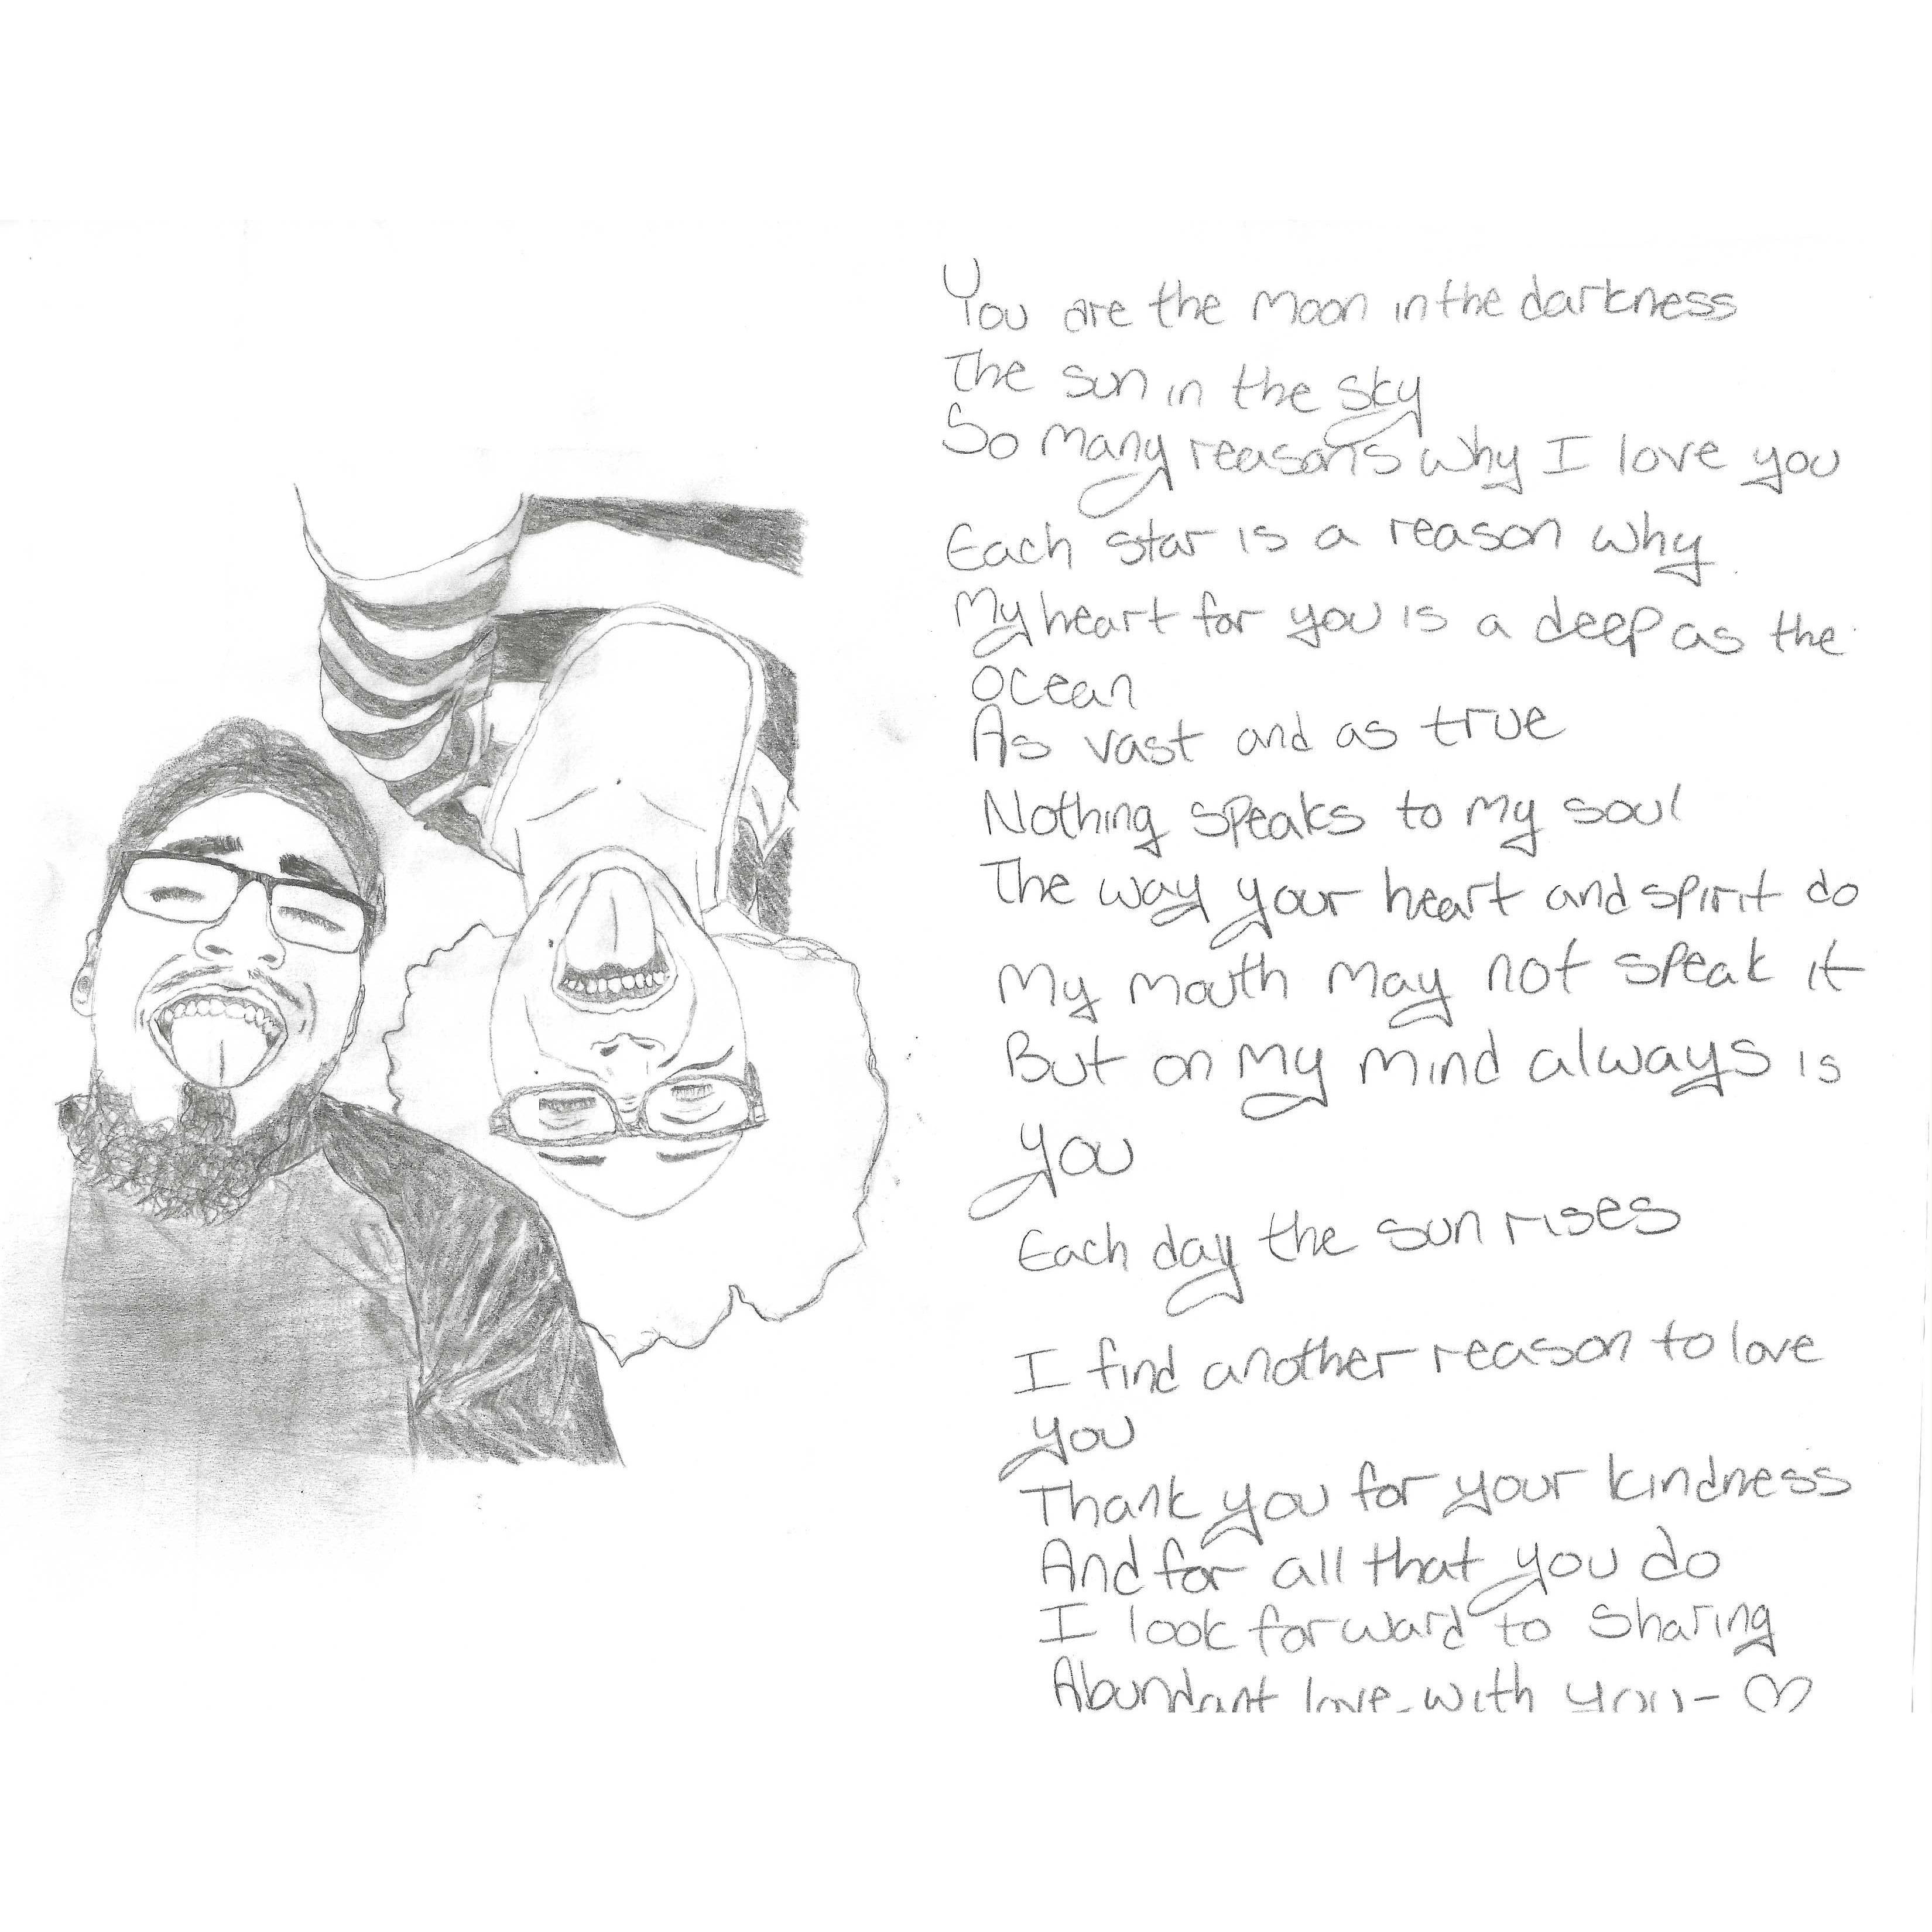 You are the moon in the darkness
The sun in the sky
So many reasons why I love you
Each star is a reason why
My heart for you is a deep as the
ocean
As vast and as true
Nothing speaks to my soul
The way your heart and spirit do
My mouth may not speak it
But on my mind always is
you
Each day the sun rises
I find another reason to love
you
Thank you for your kindness
And for all that you do
I look forward to sharing
Abundant love with you- ♡